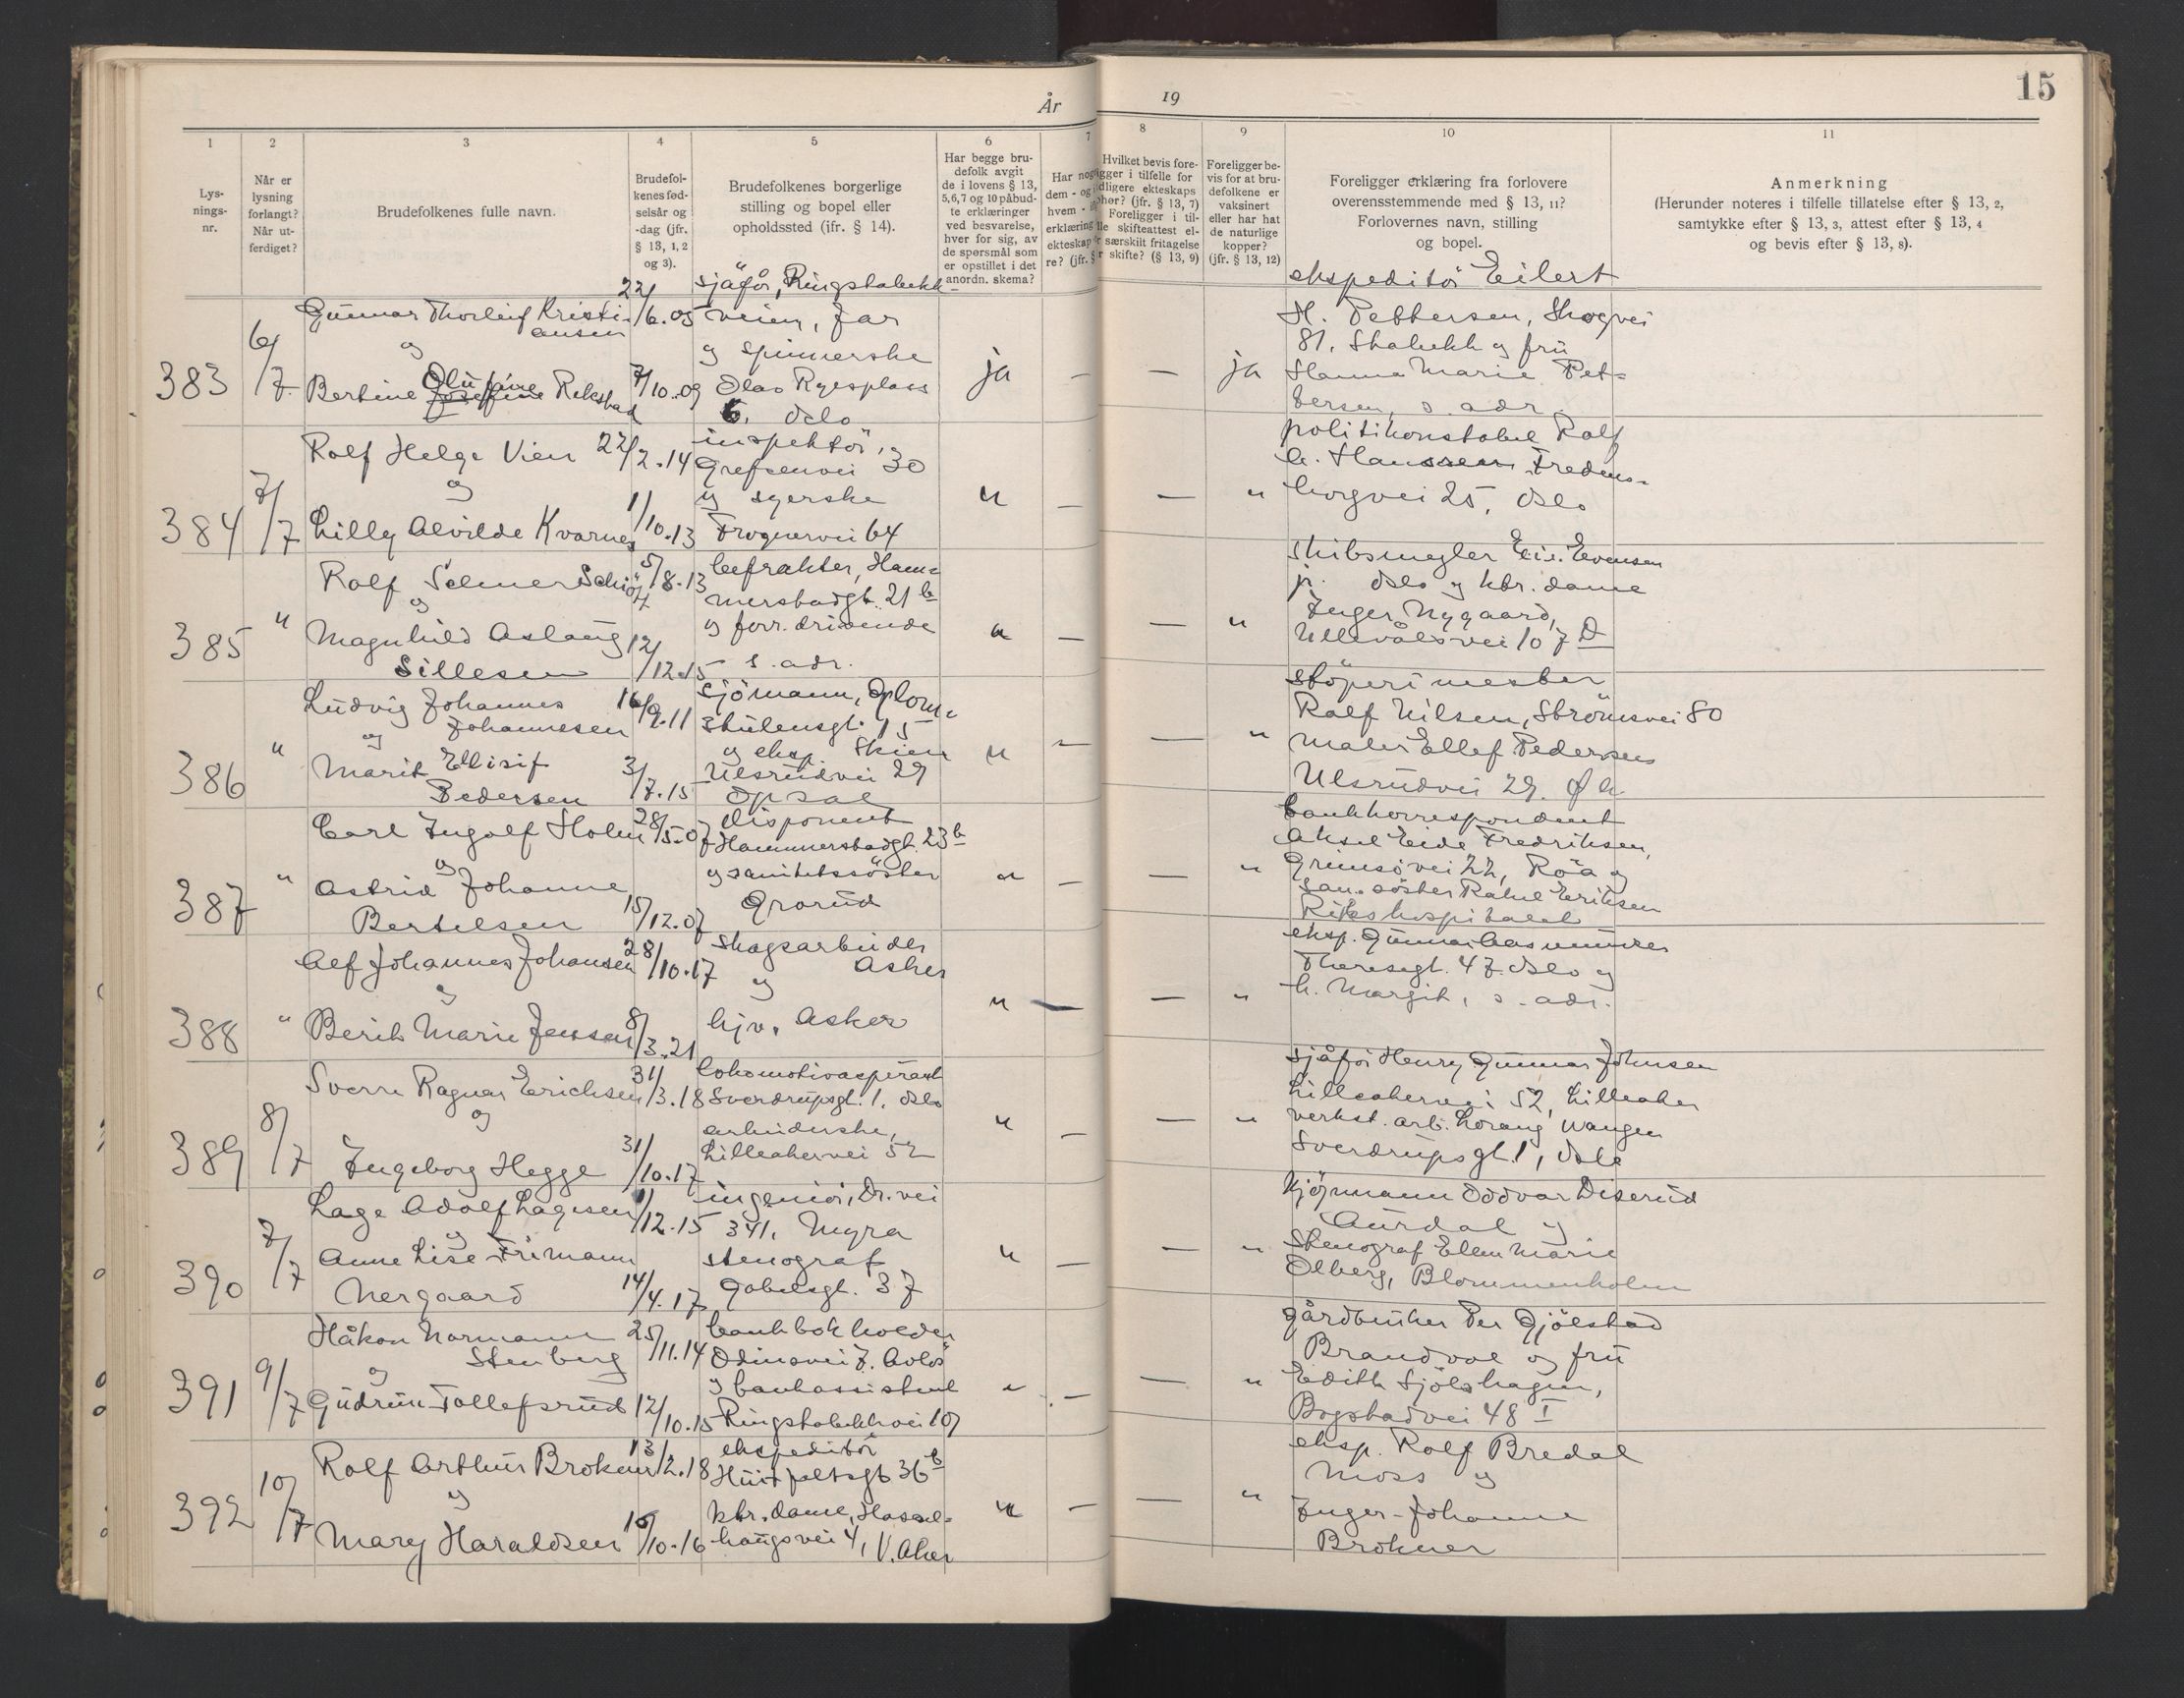 År 19
15
1 2 3 4 5 6 7 8 9 10 11
Lys-
nings-
nr.
Når er
lysning
forlangt?
Når ut-
ferdiget?
Brudefolkenes fulle navn.
Brudefol-
kenes fød-
selsår og
-dag (jfr.
§ 13, 1, 2
og 3).
Brudefolkenes borgerlige
stilling og bopel eller
opholdssted (jfr. § 14).
Har begge bru-
defolk avgit
de i lovens § 13,
5,6,7 og 10 påbud-
te erklæringer
ved besvarelse,
hver for sig, av
de spørsmål som
er opstillet i det
anordn. skema?
Har nog
dem - og i
hvem -
erklæring
ekteskap
re? (jfr. §
Hvilket bevis fore-
ligger i tilfelle for
tidligere ekteskaps
ophør? (jfr. § 13, 7)
Foreligger i til-
felle skifteattest el-
ler særskilt fritagelse
for skifte? (§ 13, 9)
Foreligger be-
vis for at bru-
defolkene er
vaksinert
eller har hat
de naturlige
kopper?
(jfr. § 13, 12)
Foreligger erklæring fra forlovere
overensstemmende med § 13, 11?
Forlovernes navn, stilling
og bopel.
Anmerkning
(Herunder noteres i tilfelle tillatelse efter § 13, 2,
samtykke efter § 13, 3, attest efter § 13, 4
og bevis efter § 13, 8).
383 6/7
Gunnar Thorleif Kristi-
ansen
og
Bertine Olufine Josefine Rekstad
22/6.05
7/10.09
sjåför, Ringstabekk-
veien, Jar
og spinnerske
Olav Ryesplass
6. Oslo
ja — — ja
ekspeditör Eilert
H. Pettersen, Skogvei
81. Stabekk og fru
Hanna Marie Pet-
tersen, s. adr.
384 7/7
Rolf Helge Vien
og
Lilly Alvilde Kvarnes
22/2.14
1/10.13
inspektör,
Grefsenvei 30
og syerske
Frognervei 64
" — — "
politikonstabel Rolf
A. Hanssen Fredens-
borgvei 25, Oslo
385 "
Rolf Selmer Schiötz
og
Magnhild Aslaug
Sillesen
5/8.13
12/12.15
befrakter, Ham-
merstadgt. 21 b
og forr. drivende
s. adr.
" — — "
skibsmegler Eiv. Evensen
jr. Oslo og ktr. dame
Inger Nygaard,
Ullevålsvei 107 D
386 "
Ludvig Johannes
Johannesen
og
Marit Ellisif
Pedersen
16/9.11
3/7.15
sjömann,
15
og eksp. Skien
Ulsrudvei 29
Opsal
" — — "
stöperimester
Ralf Nilsen, Strömsvei 80
maler Ellef Pedersen
Ulsrudvei 29. Ø A
387 "
Carl Ingolf Holm
og
Astrid Johanne
Bertelsen
28/5.07
15/12.07
disponent
Hammerstadgt. 23 b
og sanitetssöster
Grorud
" — — "
bankkorrespondent
Aksel Eide Fredriksen,
Grimsövei 22, Röa og
san. söster Rakel Eriksen
Rikshospitalet
388 "
Alf Johannes Johansen
og
Berit Marie Jensen
28/10.17
8/3.21
skogsarbeider
Asker
og
hjv. Asker
" — — "
eksp. Gunnar Aasmundsen
Theresegt. 47. Oslo og
h. Margit, s. adr.
389 8/7
Sverre Ragnar Erichsen
og
Ingeborg Hegge
31/3.18
31/10.17
lokomotivaspirant
Sverdrupsgt. 1, Oslo
arbeiderske,
Lilleakervei 52
" — — "
sjåför Henry Gunnar Johnsen
Lilleakervei 52, Lilleaker
verkst. arb. Lorang Wangen
Sverdrupsgt. 1, Oslo
390 7/7
Lage Adolf Lagesen
og
Anne Lise Frimann
Nergaard
1/12.15
14/4.17
ingeniör, Dr. vei
341, Myra
stenograf
Gabelsgt. 37
" — — "
kjöpmann Oddvar Diserud
Aurdal og
stenograf Ellen Marie
Olberg, Blommenholm
391 9/7
Håkon Normann
Stenberg
og
Gudrun Tollefsrud
25/11.14
12/10.15
bankbokholder
Odinsvei 7. Avlös
og bankassistent
Ringstabekkvei 107
" — — "
gårdbruker Per Gjölstad
Brandval og fru
Edith Sjölshagen,
Bogstadvei 48 I
392 10/7
Rolf Arthur Brokner
og
Mary Haraldsen
13/2.18
10/10.16
ekspeditör
Huitfeltsgt 36 b
ktr. dame, Hassel-
haugsvei 4, V. Aker
" — — "
eksp. Rolf Bredal
Moss og
Inger-Johanne
Brokner